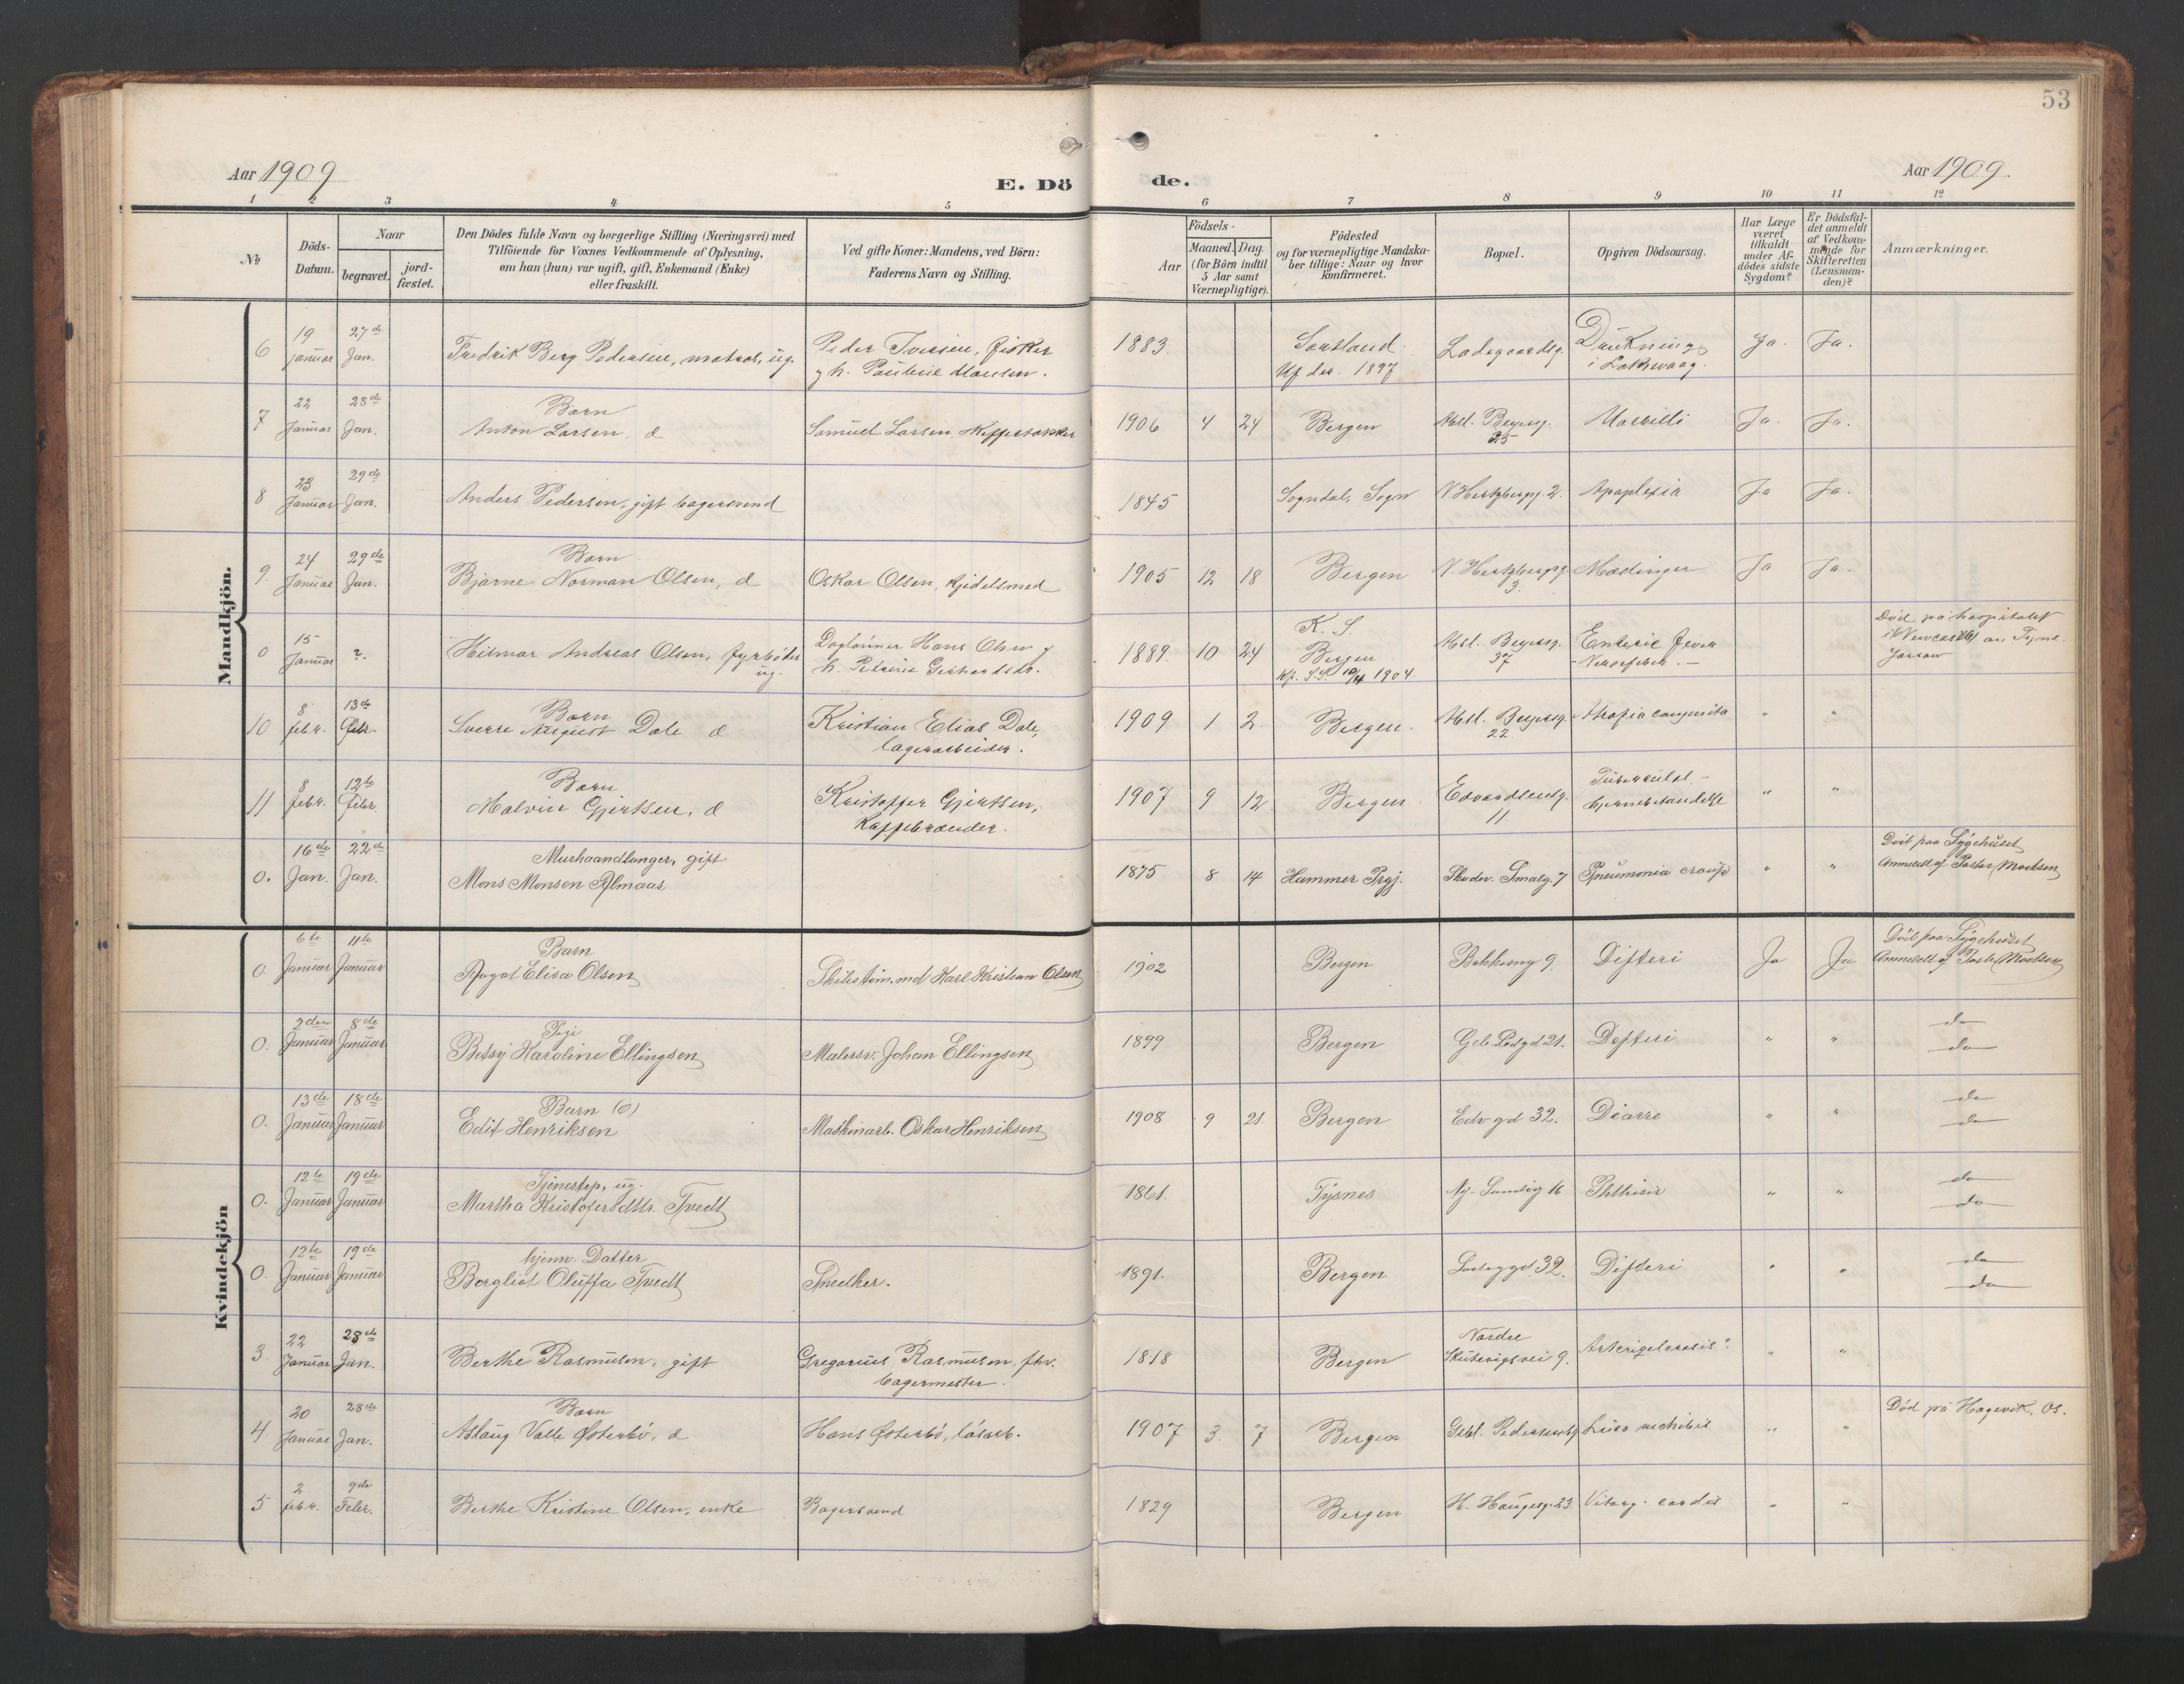 53
Aar 1909
E. Dö de.
Aar 1909.
1 2 3 4 5 6 7 8 9 10 11 12
No
Döds-
Datum.
Naar
begravet.
jord-
fæstet.
Den Dödes fulde Navn og borgerlige Stilling (Næringsvei) med
Tilföiende for Voxnes Vedkommende af Oplysning,
om han (hun) var ugift, gift, Enkemand (Enke)
eller fraskilt.
Ved gifte Koner: Mandens, ved Börn:
Faderens Navn og Stilling.
Födsels-
Aar
Maaned. Dag.
(for Börn indtil
5 Aar samt
Værnepligtige).
Födested
og for værnepligtige Mandska-
ber tillige: Naar og hvor
konfirmeret.
Bopæl.
Opgiven Dödsaarsag.
Har Læge
været
tilkaldt
under Af-
dödes sidste
Sygdom?
Er Dödsfal-
det anmeldt
af Vedkom-
mende for
Skifteretten
(Lensman-
den)?
Anmærkninger.
Mandkjön.
6 19 januar 27de Jan. Fredrik Berg Pedersen, matros, ug. Peder Iversen, fisker
1883. Ladegaardsg. Drukning Ja. Ja.
1897
7 22 Januar 28de Jan. Barn
Anton Larsen d Samuel Larsen 1906 4 24 Bergen 25 Ja. Ja.
8 23 Januar 29de Jan. Anders Pedersen, gift bagersvend 1845 Sogndal, Sogn N. Hertzbergg. 2. Apoplexia Ja Ja.
9. 24 Januar 29de Jan. Barn
Bjarne Norman Olsen, d Oskar Olsen, kjedelsmed 1905 12 18 Bergen N. Hertzbergg. 3. Mæslinger Ja Ja.
0 15 Januar ?. Hilmar Andreas Olsen, fyrbøder ug. Daglønner Hans Olsen
1889. 10 24 K. S.
Bergen
1904. 37 Enteric fever
Nervefeber.
Død på hospitalet
i Newcastle on Tyne.
Jarrow
10 8 febr. 13de Febr. Barn
Sverre August Dale d Kristian Elias Dale,
lagerarbeider. 1909 1 2. Bergen. 22. Atrofia congenita " "
11 8 febr. 12te Febr Barn
Malvin Gjertsen, d Kristoffer Gjertsen,
Kaffebrænder. 1907 9 12. Bergen Edvardsensg. 11. Tuberculøs
hjernebetændelse " "
0. 16de Jan. 22de Jan. Murhaandlanger, gift
Mons Monsen Almaas 1875 8 14 Hammer Prgj. Skudev. Smalg. 7 Pneumonia croup " "
Död paa Sygehuset
Anmeldt af Pastor Madsen
Kvindekjön
0 6te Januar 11te Januar Barn
Aagot Elisa Olsen Karl Kristian Olsen 1902 Bergen Bakkesmg 9. Difteri Ja Ja
Död paa Sygehuset
Anmeldt af Pastor Madsen
0. 2den Januar 8de Januar Pige
Betsy Karoline Ellingsen Malersv. Johan Ellingsen 1899 Bergen Geb. Pedgd 21. Difteri " "
do
do
0. 13de Januar 18de Januar Barn (d)
Edit Henriksen Maskinarb. Oskar Henriksen 1908 9 21. Bergen Edv gd 32. Diarre " "
do
do
0. 12te Januar 19de Januar Tjenestep, ug.
Martha Kristofersdttr. Tvedt 1861. Tysnes Ny- Sandvig 16 Phthisis " "
do
do
0. 12te Januar 19de Januar hjemv. Datter
Borgliot Oluffa Tvedt Snedker. 1891. Bergen Ladeggd 32. Difteri " "
do
do
3. 22 Januar 28de Jan. Berthe Rasmusen, gift Gregorius Rasmusen, fhv.
bagermester. 1818 Bergen Nordre
Skutevigsvei 9. " "
4 20 Januar 28de Jan. Barn
Aslaug Valle Østerbø, d Hans Østerbø, løsarb. 1907 3. 7 Bergen Gebl. Pedersensg " "
Død på Hagevik, Os.
5 2 febr. 9de Febr. Berthe Kristine Olsen, enke Bagersvend 1829 Bergen H. Haugesg. 23. Vitorg. cordis " "